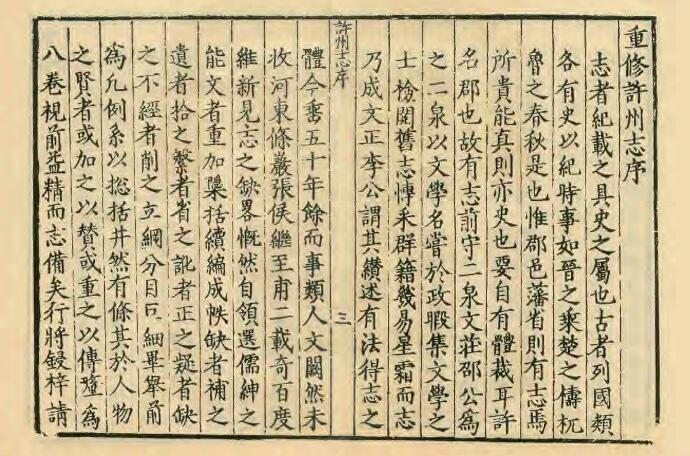 重修許州志序
志者紀載之具史之屬也古者列國類
各有史以紀時事如晉之乘楚之檮杌
魯之春秋是也惟郡邑藩省則有志焉
所貴能真則亦史也要自有體裁耳許
名郡也故有志前守二泉文莊邵公為
之二泉以文學名嘗於政暇集文學之
士檢閱舊志博采群籍幾易星霜而志
乃成文正李公謂其纘述有法得志之
許州志序
三
體今五十年餘而事類人文闕然未
收河東條巖張侯繼至甫二載奇百度
維新見志之缺畧慨然自領選儒紳之
能文者重加檃括續編成帙缺者補之
遺者拾之繁者省之訛者正之疑者缺
之不經者削之立綱分目巨細畢舉前
為凡例系以總括井然有條其於人物
之賢者或加之以贊或重之以傳釐為
八卷視前益精而志備矣行將鋟梓請